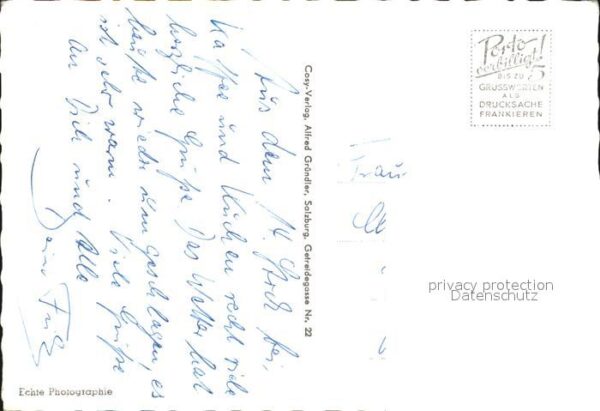 Aus dem St. Peter bei
Kaffee und Kuchen recht viele
herzliche Grüße. Das Wetter hat
heute wieder umgeschlagen, es
ist sehr warm. Viele Grüße
an Dich und Alle
Deine
Cosy-Verlag, Alfred Gründler, Salzburg, Getreidegasse Nr. 22
Echte Photographie
Porto
verbilligt!
BIS ZU 5
GRUSSWORTEN
ALS
DRUCKSACHE
FRANKIEREN
Frau
privacy protection
Datenschutz